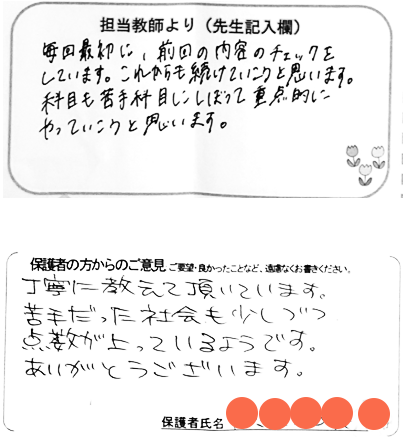 担当教師より（先生記入欄）
毎回最初に、前回の内容のチェックを
しています。これからも続けていこうと思います。
科目も苦手科目にしぼって重点的に
やっていこうと思います。
保護者の方からのご意見 ご要望・良かったことなど、遠慮なくお書きください。
丁寧に教えて頂いています。
苦手だった社会も少しづつ
点数が上っているようです。
ありがとうございます。
保護者氏名